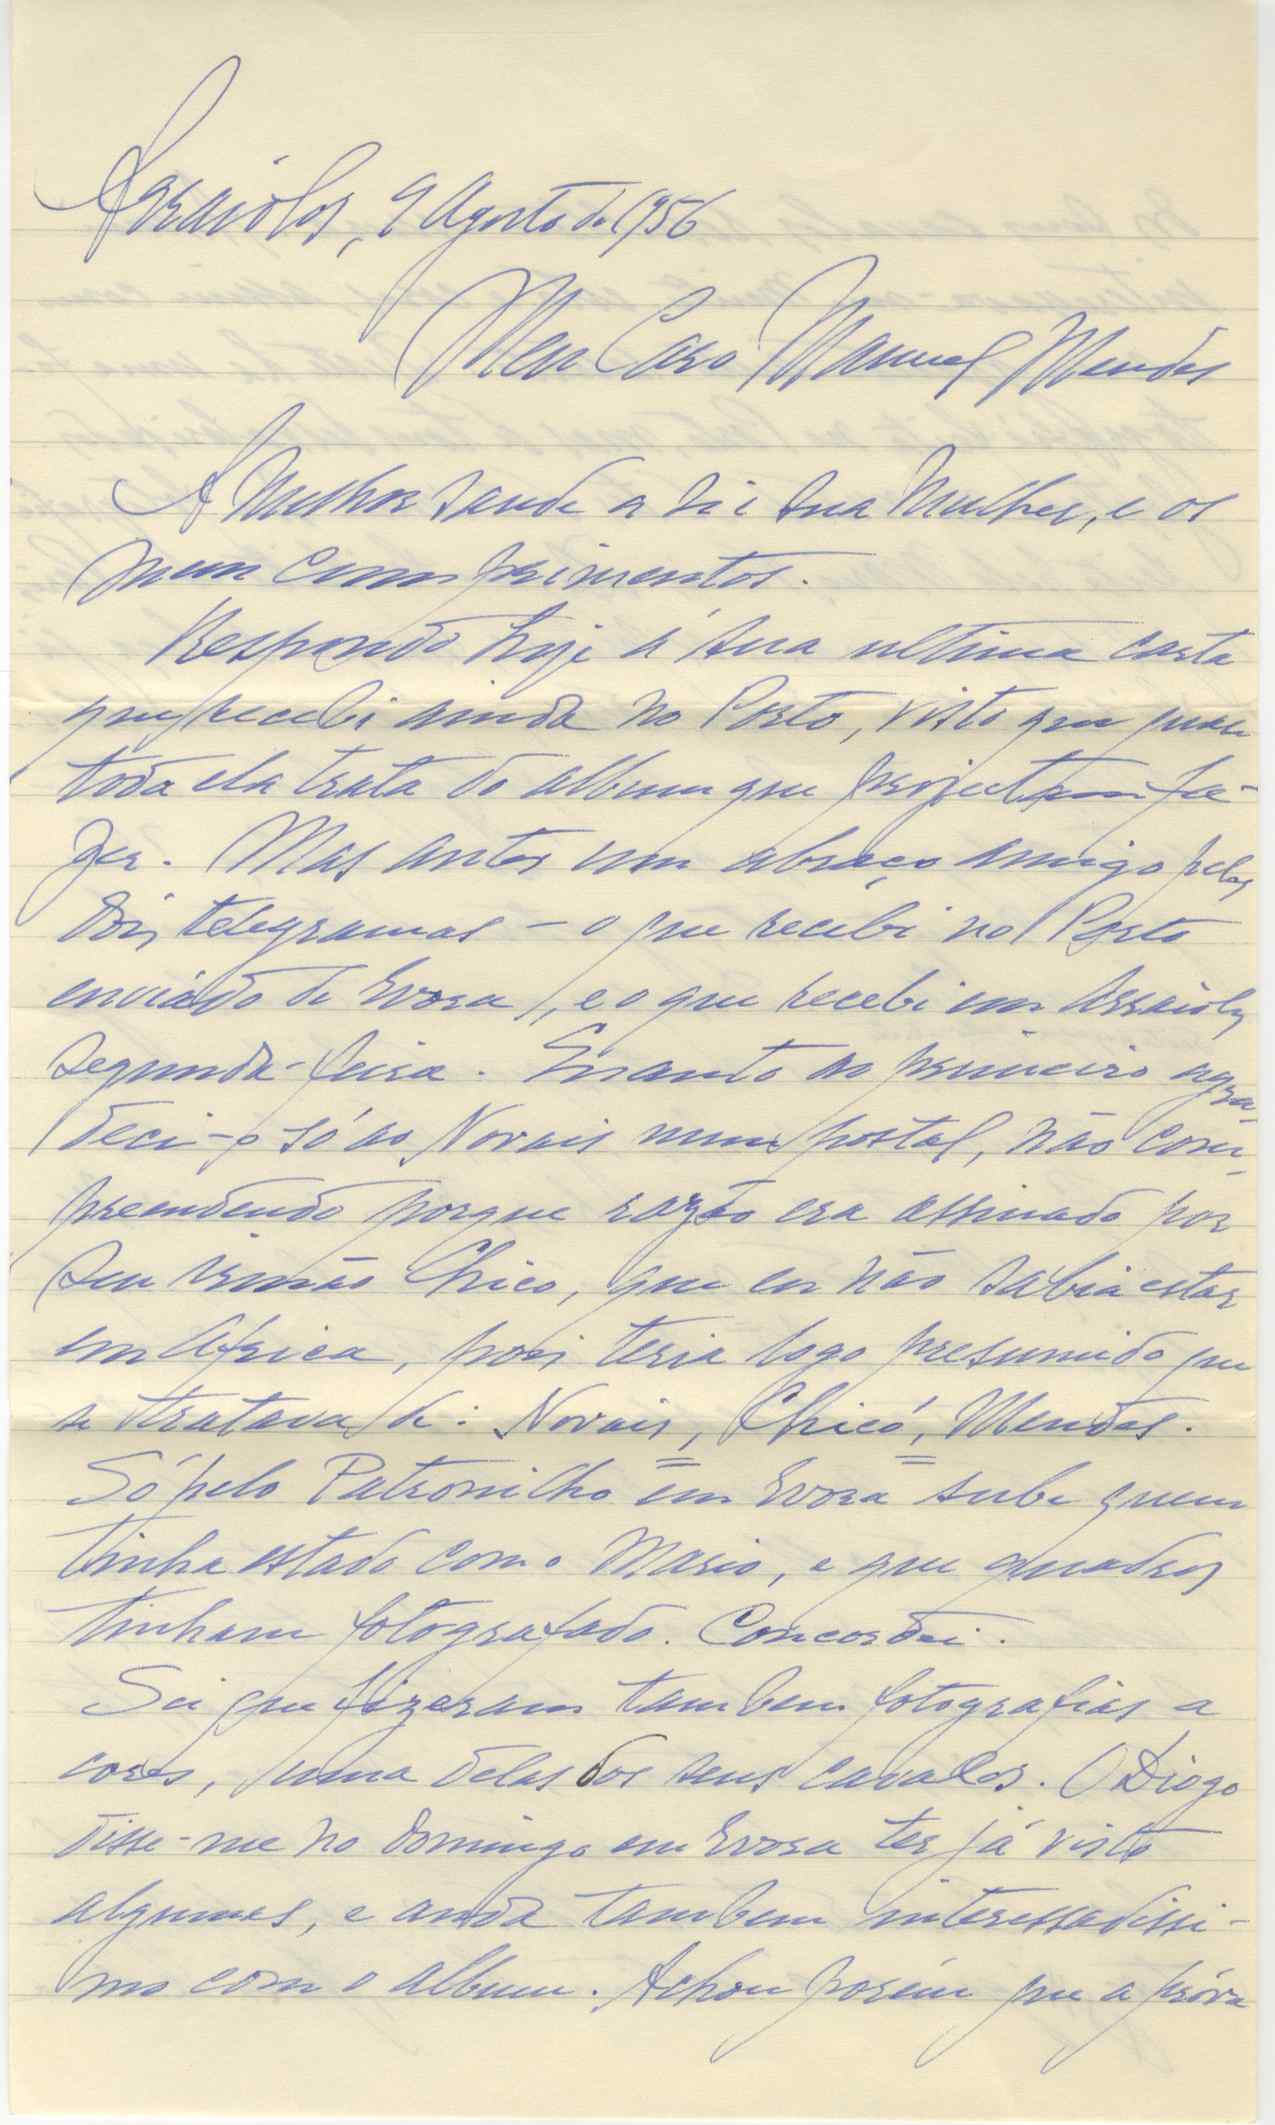 Arraiolos, 9 Agosto de 1956
Meu Caro Manuel Mendes
A melhor saude a si e sua Mulher, e os
meus comprimentos.
Respondo hoje á sua ultima carta
que recebi ainda no Porto, visto que quasi
toda ela trata do album que projectam fa-
zer. Mas antes um abraço amigo pelos
dois telegramas – o que recebi no Porto
enviádo de Evora, e o que recebi em Arraiolos
segunda-feira. Enanto ao primeiro agra-
deci-o só ao Novais num postal, não com-
preendendo porque razão era assinado por
seu irmão Chico, que eu não sabia estar
em Africa, pois teria logo presumido que
se tratava de: Novais, Chicó, Mendes.
Só pelo Patronilho em Evora sube quem
tinha estado com o Mario, e que quadros
tinham fotografado. Concordei.
Sei que fizeram tambem fotografias a
cores, uma delas dos seus cavalos. O Diogo
disse-me no domingo em Evora ter já visto
algumas, e anda tambem interessadissi-
mo com o album. Achou porém que a próva